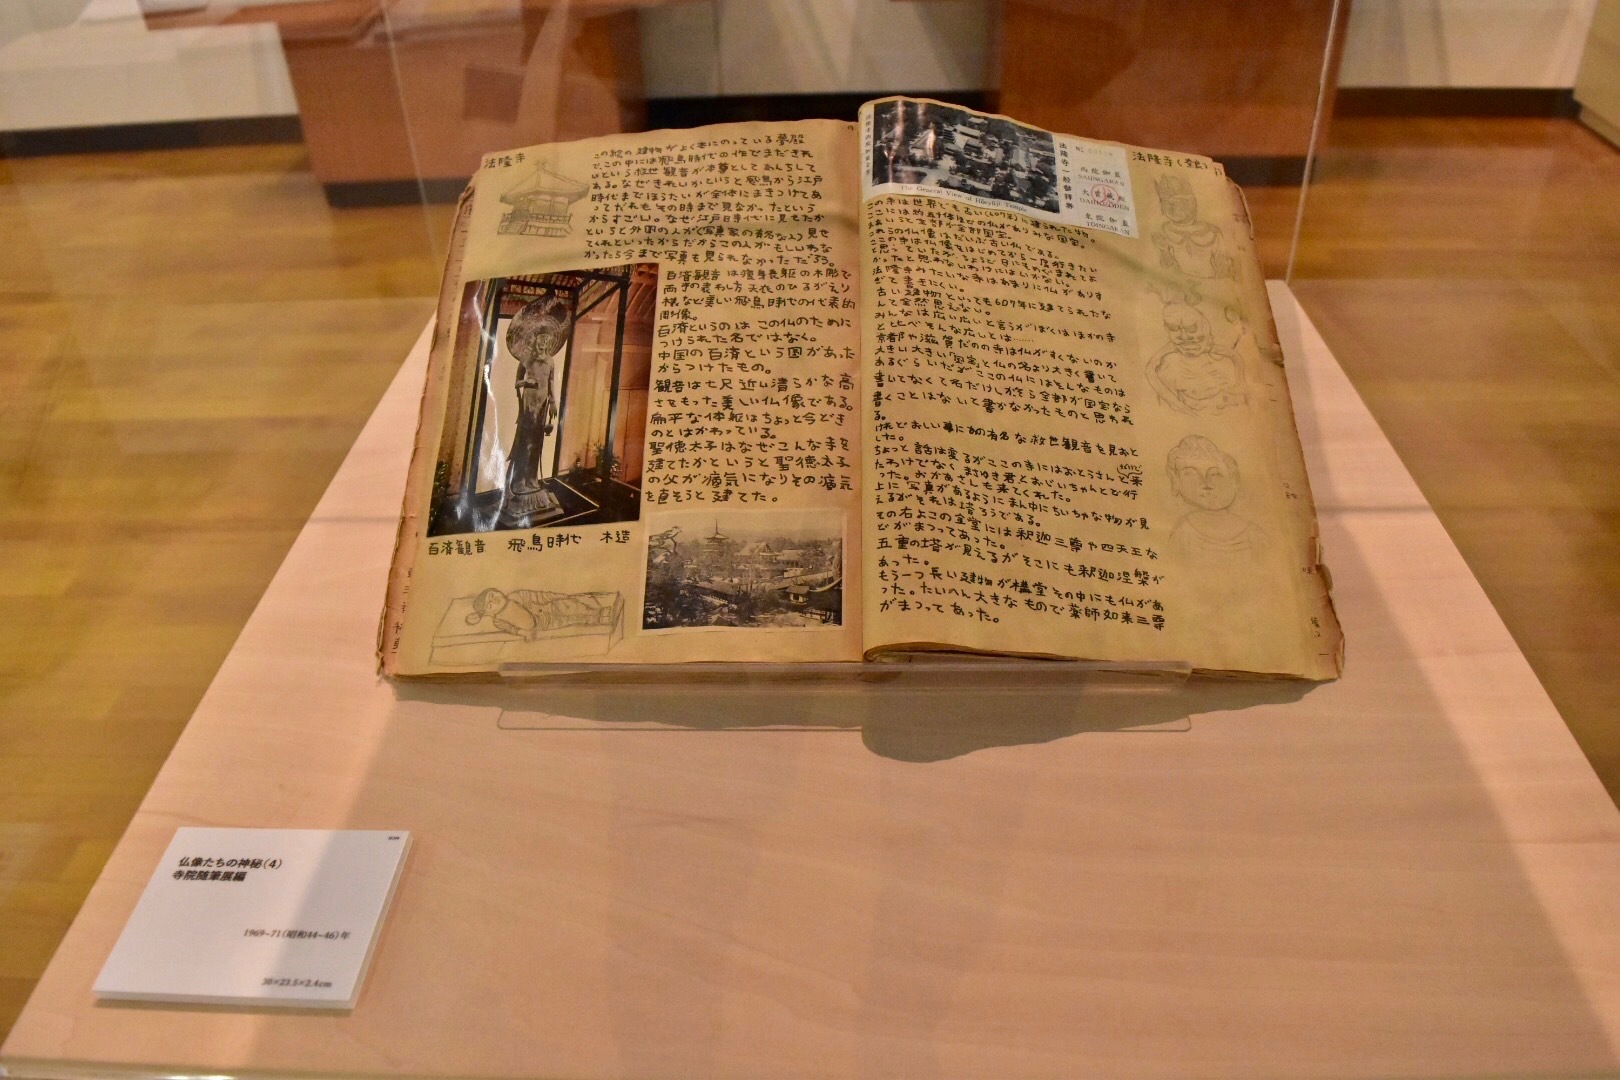 法隆寺
この絵の建物がよく本にのっている夢殿
でこの中には飛鳥時代の作でまだきれ
いという救世観音が本尊としてあんちして
ある。なぜきれいかというと飛鳥から江戸
時代までほうたいが全体にまきつけてあ
ってだれもその時まで見なかったという
からすごい。なぜ江戸時代に見せたか
というと外国の人が(写真家の有名な人)見せ
てくれといったからだからこの人がもしいわな
かったら今まで写真も見られなかっただろう。
百済観音は痩身長躯の木彫で
両手の表わし方天衣のひるがえり
様など美しい飛鳥時代の代表的
彫像。
百済というのはこの仏のために
つけられた名ではなく。
中国の百済という国があった
からつけたもの。
観音は七尺近い清らかな高
さをもった美しい仏像である。
扁平な体躯はちょっと今どき
のとはかわっている。
聖徳太子はなぜこんな寺を
建てたかというと聖徳太子
の父が病気になりその病気
を直そうと建てた。
百済観音 飛鳥時代 木造
The General View of Hōryūji Temple
法隆寺一般参拝券
西院伽藍
SAIINGARAN
大宝蔵殿
DAIHOZODEN
東院伽藍
TOINGARAN
法隆寺(奈良)
この寺は世界でも古い(607年)に建られた物。
ここには約五十体ほどの仏がありみな国宝。
これらの仏像はだいぶ古い仏である。
ここの寺は仏像をはじめてから一度行きたい
と思っていたがちょうど日にもめぐまれてよ
かったと思わないわけにはいかない。
法隆寺みたいな寺はあまりに仏がありす
ぎて書きにくい。
古い建物といっても607年に建てられたな
んて全然思えない。
みんなは広い広いと言うがぼくはほかの寺
と比べそんな広いとは……
京都や滋賀だのの寺は仏がすくないのか
大きい大きい「国宝」と仏の名より大きく書いて
あるぐらいだがここの仏にはそんなものは
書いてなくて名だけしかもら全部が国宝なら
書くことはないと書かなかったものと思われ
る。
けれどおしい事にあの有名な救世観音を見おと
した。
ちょっと話は変るがここの寺にはおとうさんと来
たわけでなくまさゆき君とおじいちゃんとで行
った。おかあさんも来てくれた。
上に写真があるようにまん中にちいちゃな物が見
えるがそれは塔ろうである。
その右よこの金堂には釈迦三尊や四天王な
どがまつってあった。
五重の塔が見えるがそこにも釈迦涅槃が
あった。
もう一つ長い建物が講堂その中にも仏があ
った。たいへん大きなもので薬師如来三尊
がまつってあった。
仏像たちの神秘(4)
寺院随筆展編
1969–71(昭和44–46)年
30×23.5×2.4cm